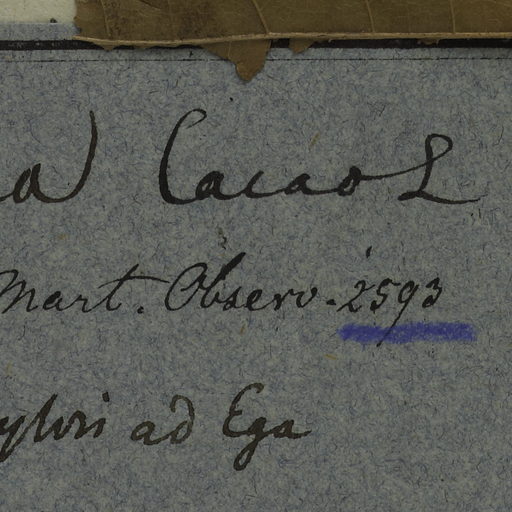 Cacao L
Mart. Observ. 2593
ad Ega